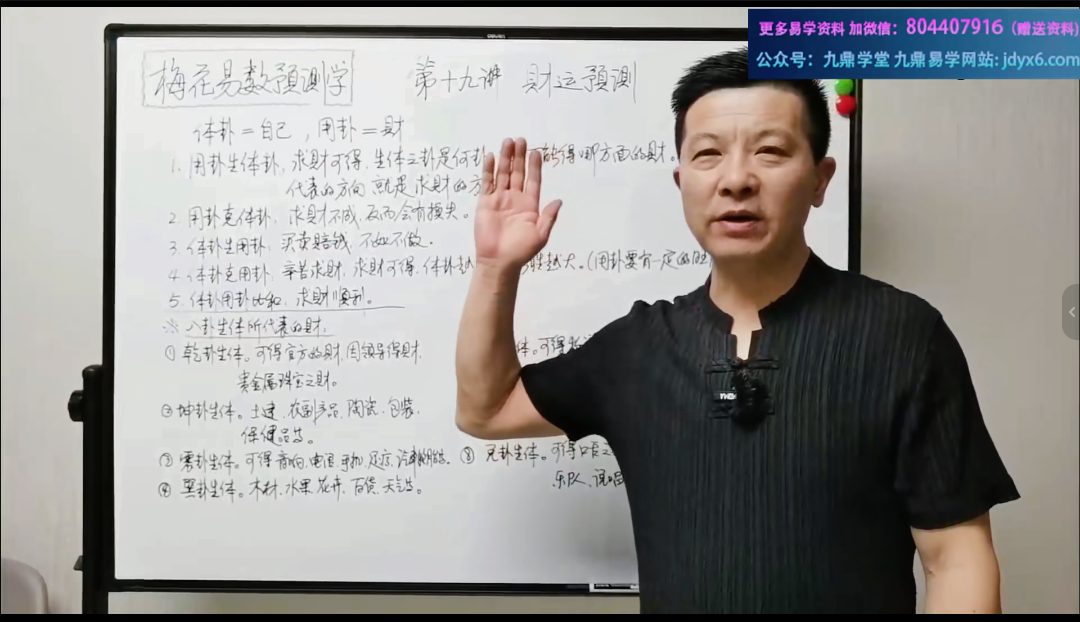 更多易学资料 加微信：804407916（赠送资料）
公众号：九鼎学堂 九鼎易学网站：jdyx6.com
梅花易数预测学 第十九讲 财运预测
体卦=自己，用卦=财
1. 用卦生体卦，求财可得，生体之卦是何卦 可能得哪方面的财。
代表的方向就是求财的方
2. 用卦克体卦，求财不成，反而会有损失。
3. 体卦生用卦，买卖赔钱，不如不做。
4. 体卦克用卦，辛苦求财，求财可得，体卦越 胜越大。(用卦要有一定的旺
5. 体卦用卦比和，求财顺利。
※ 八卦生体所代表的财：
① 乾卦生体。可得官方的财，因领导得财， 体。可得
贵金属珠宝之财。
② 坤卦生体。土建，农副产品，陶瓷，包装，
保健品等。
③ 震卦生体。可得音响，电话，手机，足疗，汽车 等。 ⑧ 兑卦生体。可得口舌之
④ 巽卦生体。木材，水果，花卉，百货，天气等。 乐队，